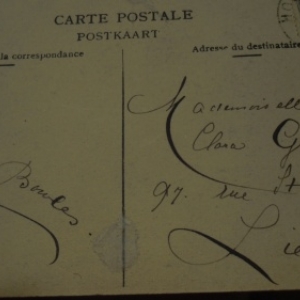 CARTE POSTALE
POSTKAART
la correspondance
Adresse du destinataire
Mademoisell
Clara G
97. rue St
Liè